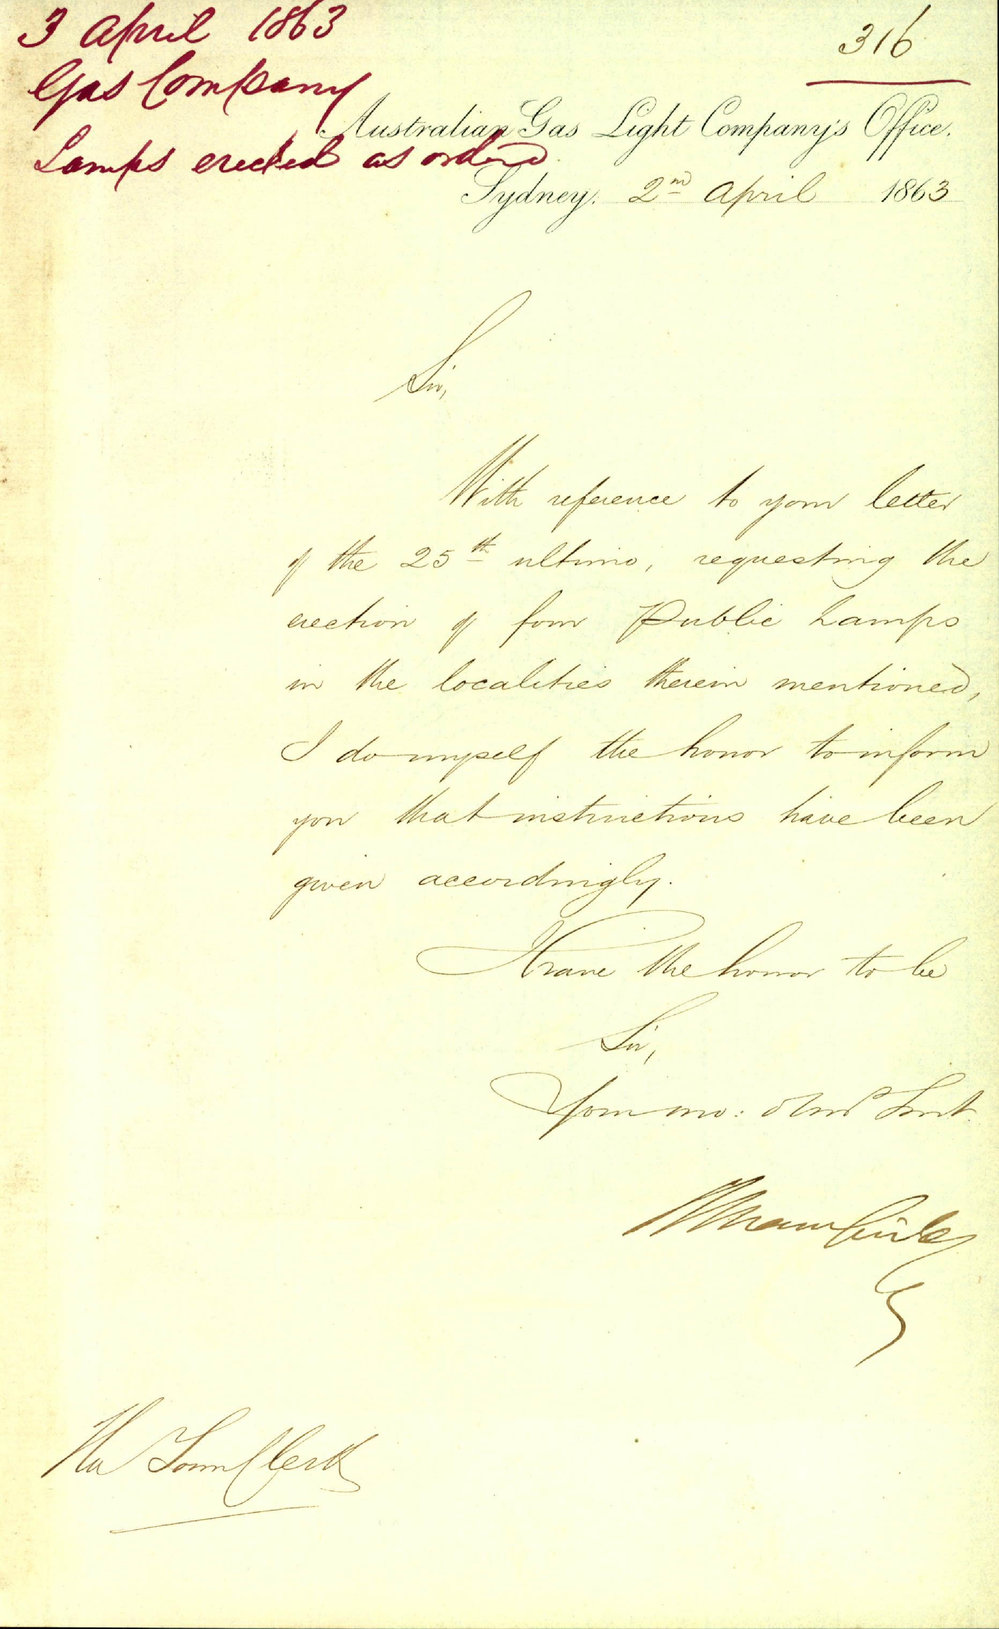 3 April 1863
316
Gas Company
Australian Gas Light Company's Office.
Lamps erected as ordered
Sydney. 2nd April 1863
Sir,
With reference to your letter
of the 25th ultimo, requesting the
erection of four Public Lamps
in the localities therein mentioned,
I do myself the honor to inform
you that instructions have been
given accordingly.
I have the honor to be
Sir,
Your mo: obt Servt.
The Town Clerk